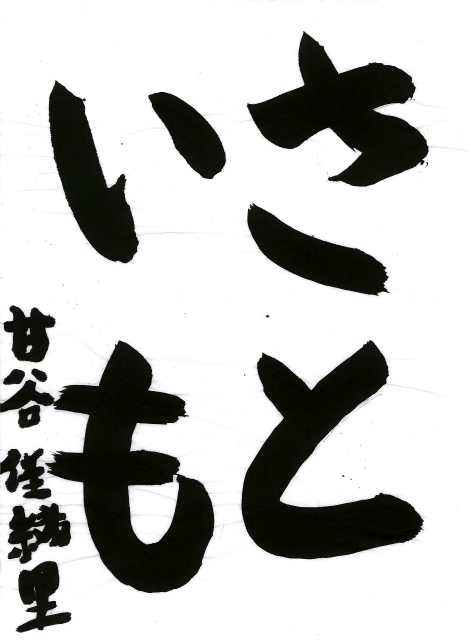 さと
いも
甘谷佳緒里